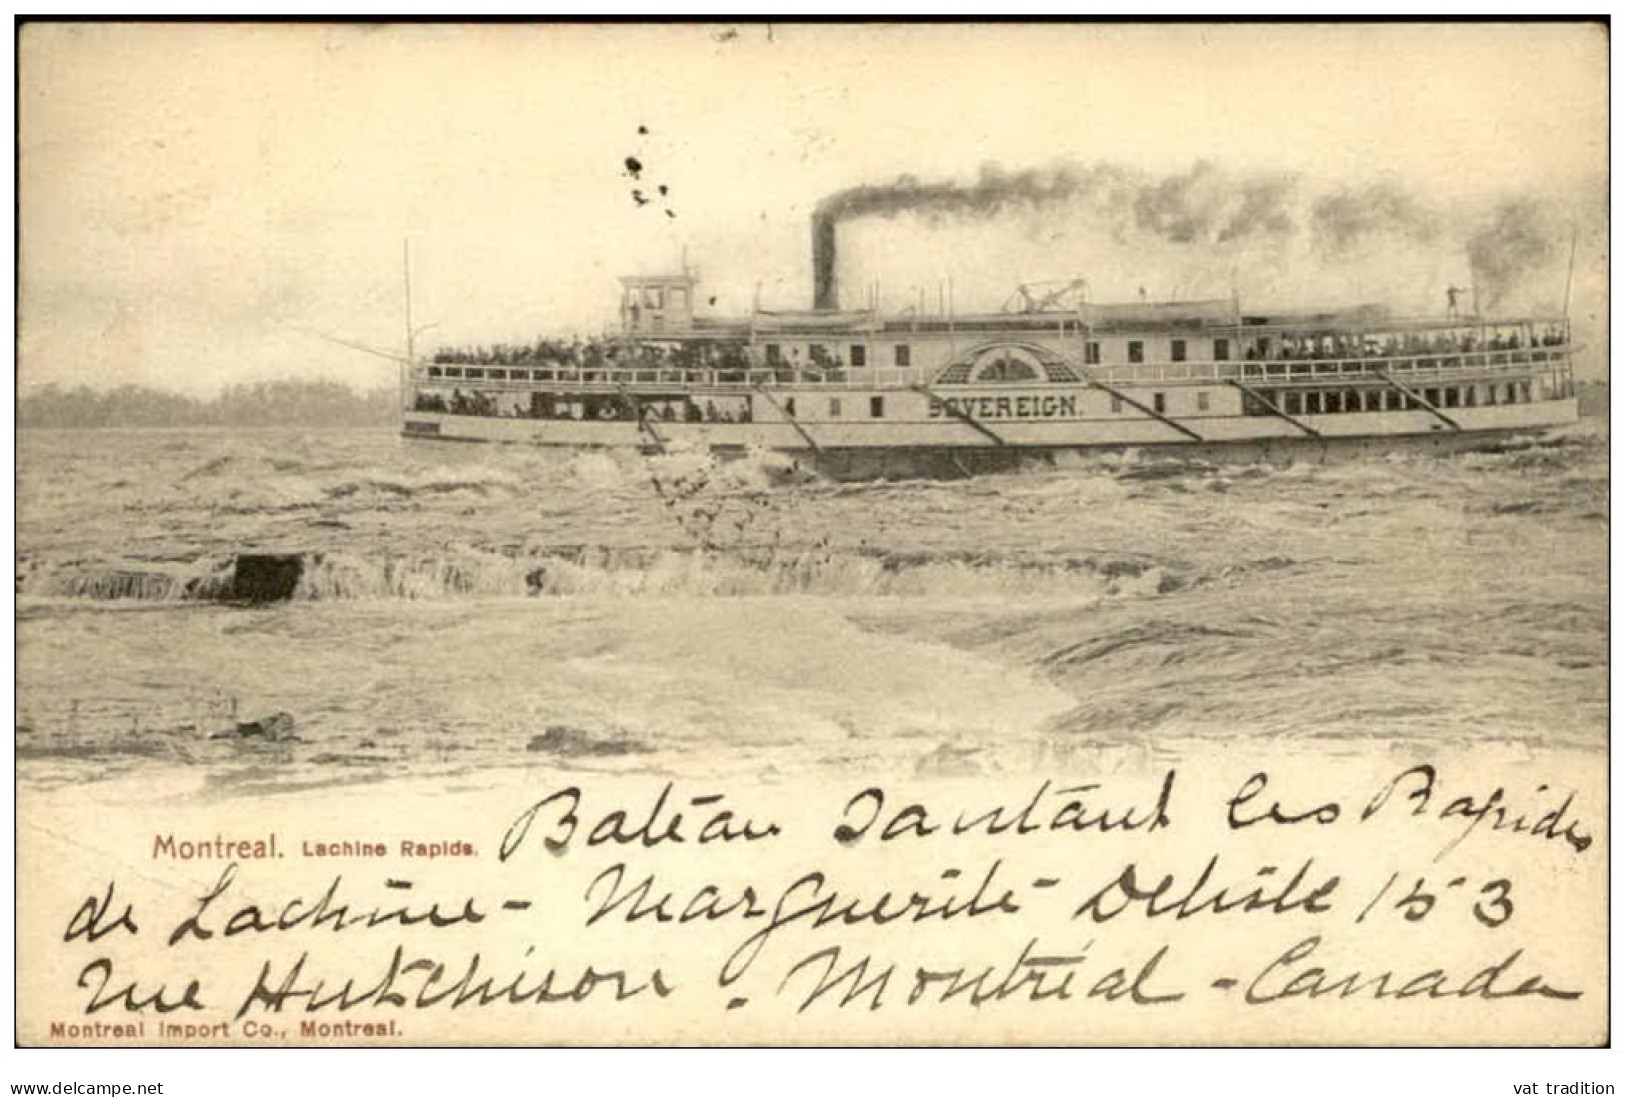 SOVEREIGN.
Montreal. Lachine Rapids.
Bateau sautant les Rapides
de Lachine - Marguerite Delisle 153
rue Hutchison. Montréal - Canada
Montreal Import Co., Montreal.
www.delcampe.net
vat tradition